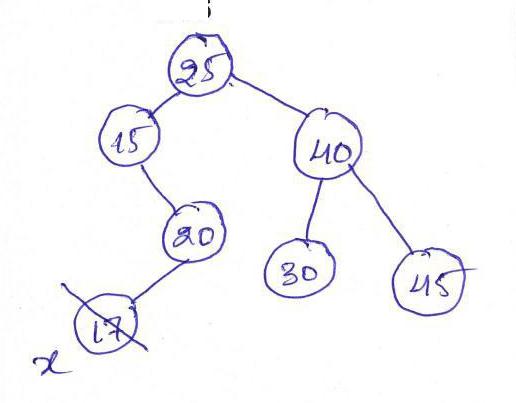 25
15
40
20
30
45
17
x